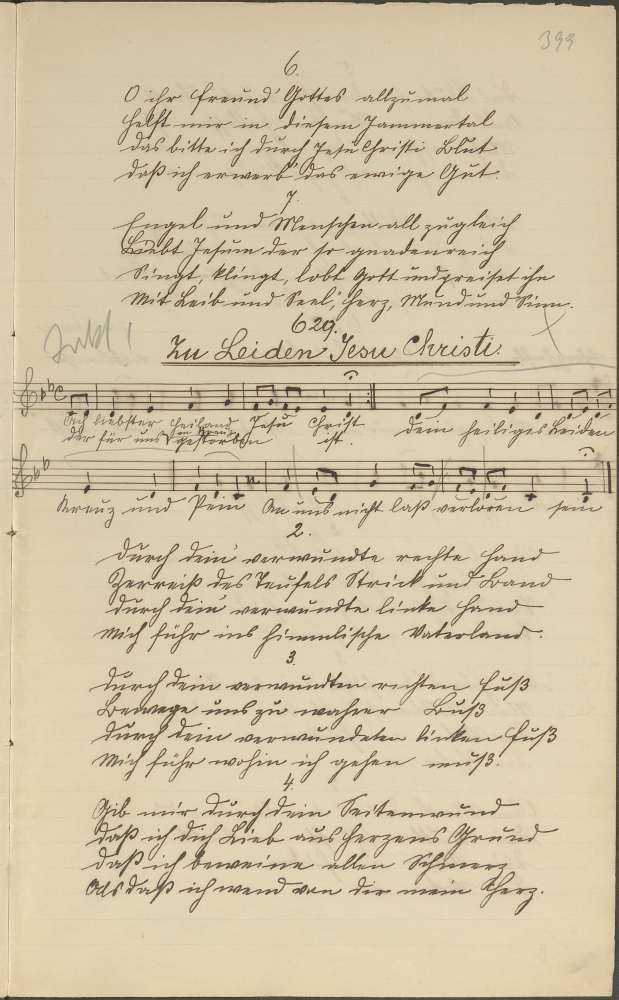 399
6.
O ihr Freund' Gottes allzumal
Helft mir in diesem Jammertal
Das bitte ich durch Jesu Christi Blut
daß ich erwerb' das ewige Gut.
7.
Engel und Menschen all zugleich
Liebt Jesum der so gnadenreich
Singt, klingt, lobt Gott und preiset ihn
Mit Leib und Seel', Herz, Mund und Sinn.
629.
Zu Leiden Jesu Christi.
Ach liebster Heiland Jesu Christ dein heiliges Leiden
der für uns gestorben ist.
Kreuz und Pein An uns nicht laß verloren sein
2.
Durch dein' verwundte rechte Hand
Zerreiß des Teufels Strick und Band
Durch dein' verwundte linke Hand
Mich führ ins himmlische Vaterland.
3.
Durch dein verwundten rechten Fuß
Bewege uns zu wahrer Buß
Durch dein verwundeten linken Fuß
Mich führ wohin ich gehen muß.
4.
Gib mir durch dein Seitenwund
daß ich dich Lieb aus Herzens Grund
daß ich beweine allen Schmerz
Als daß ich wend von dir mein Herz.